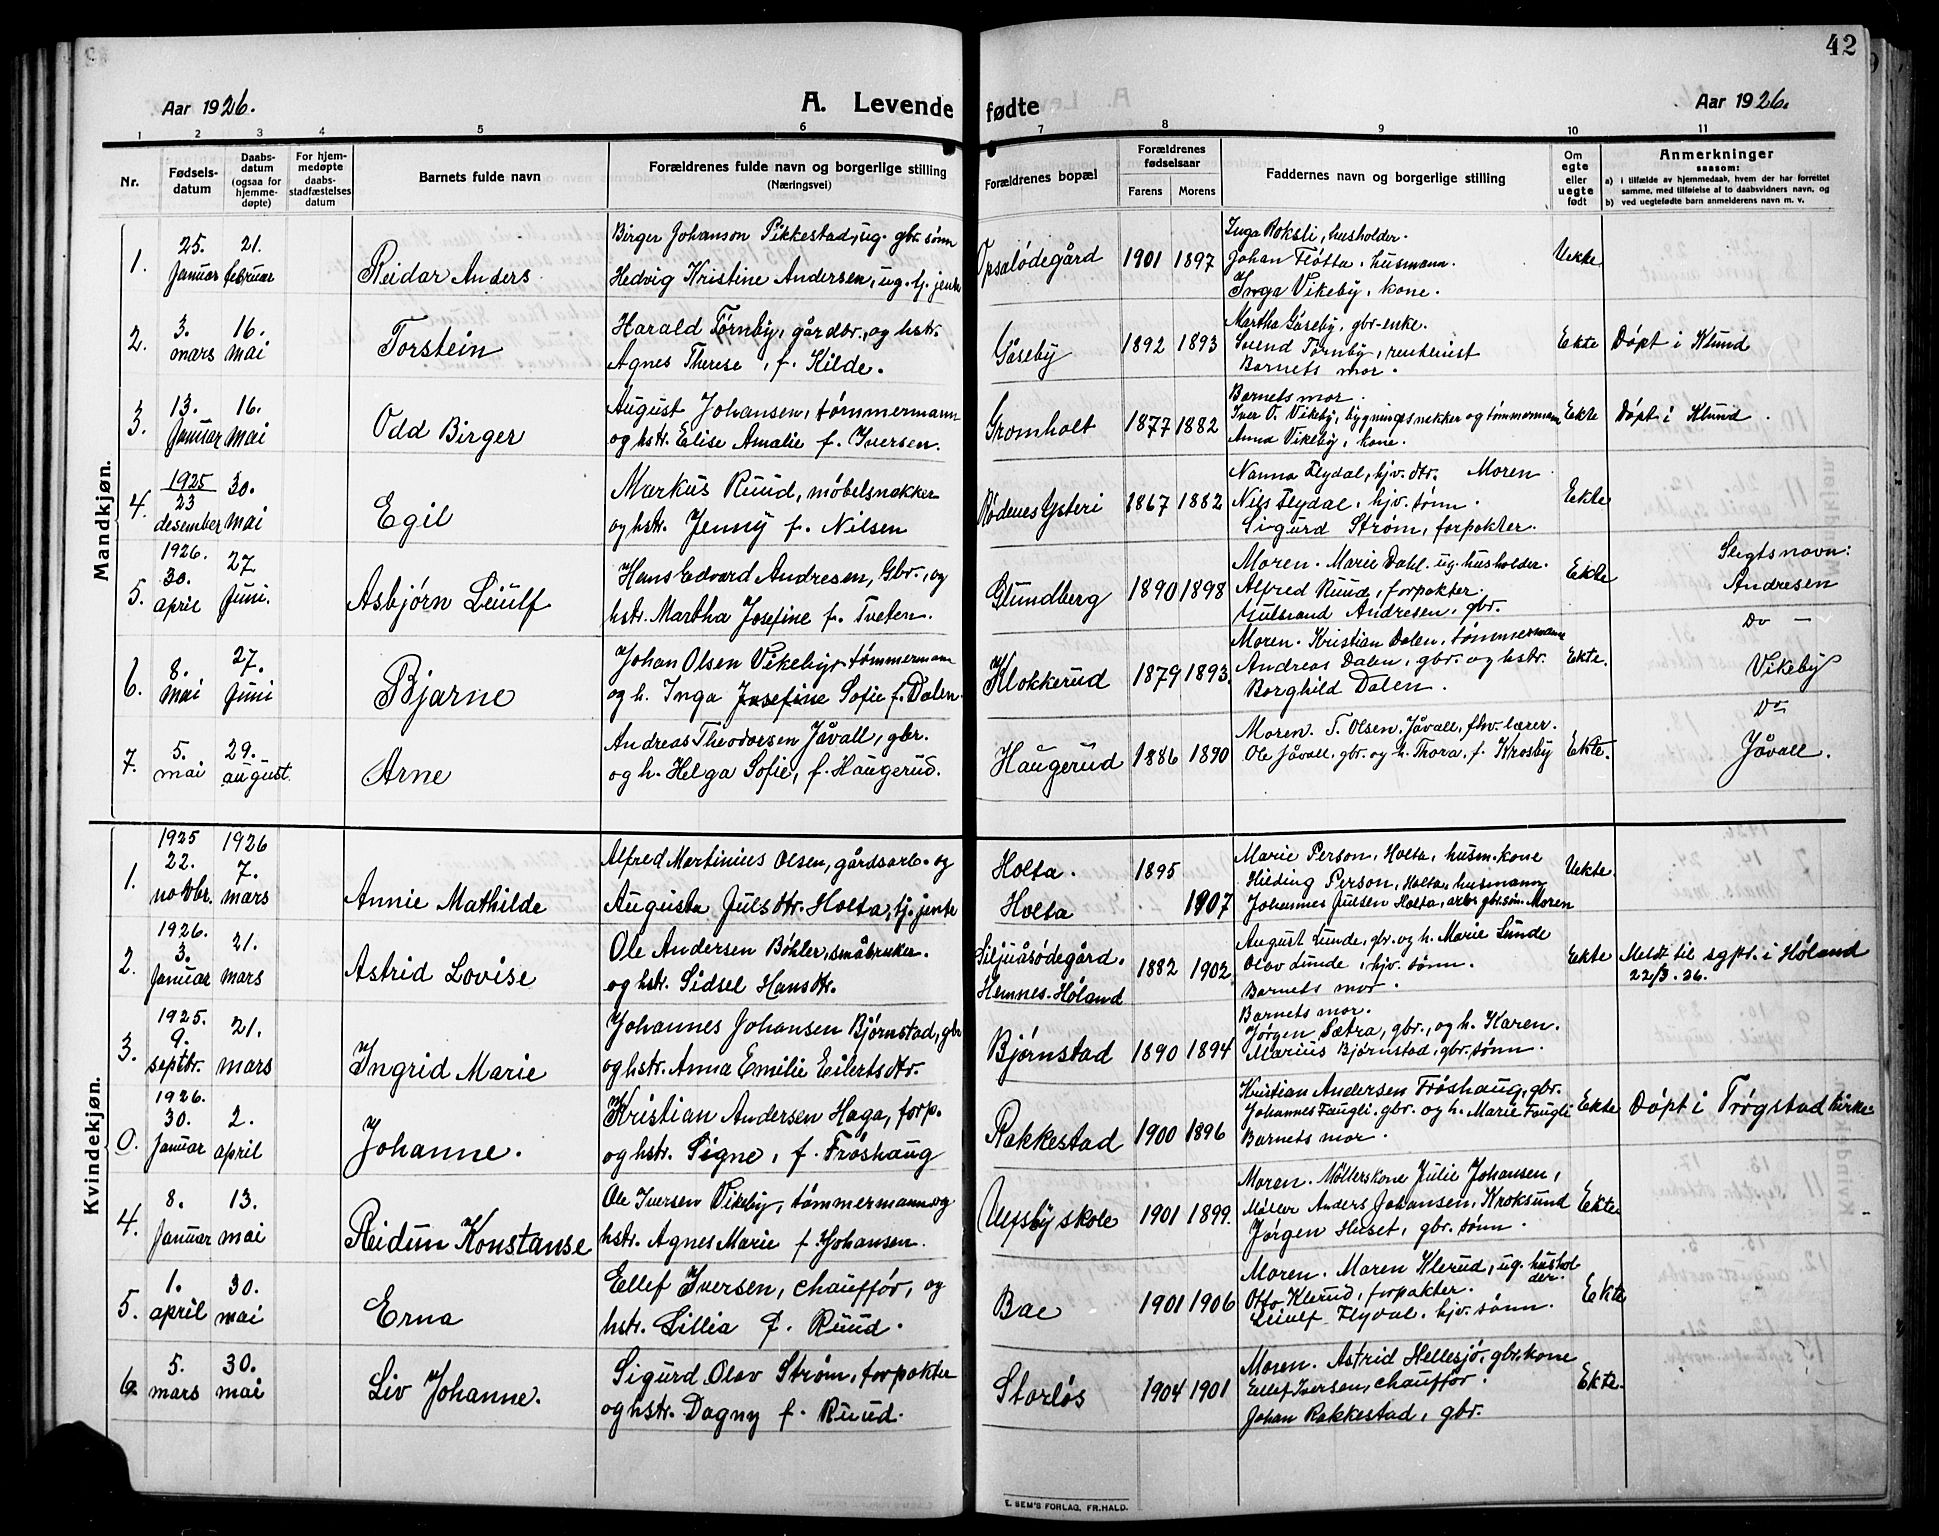 42
Aar 1926.
A. Levende fødte
Aar 1926.
1 2 3 4 5 6 7 8 9 10 11
Nr.
Fødsels-
datum
Daabs-
datum
(ogsaa for
hjemme-
døpte)
For hjem-
medøpte
daabs-
stadfæstelses
datum
Barnets fulde navn
Forældrenes fulde navn og borgerlige stilling
(Næringsvei)
Forældrenes bopæl
Forældrenes
fødselsaar
Farens Morens
Faddernes navn og borgerlige stilling
Om
egte
eller
uegte
født
Anmerkninger
saasom:
a) i tilfælde av hjemmedaab, hvem der har forrettet
samme, med tilføielse af to daabsvidners navn, og
b) ved uegtefødte barn anmelderens navn m. v.
Mandkjøn.
1.
25.
Januar
21.
februar
Reidar Anders
Birger Johanson Pikkestad, ug. gbr. sønn
Hedvig Kristine Andersen, ug. tj. jente
Opsalødegård
1901 1897
Inga Roksli, husholder.
Johan Fløtta, husmann.
Inga Vikeby, kone.
Uekte
2.
3.
mars
16.
mai
Torstein
Harald Tørnby, gårdbr., og hstr.
Agnes Therese, f. Kilde.
Gåseby
1892 1893
Martha Gåseby, gbr-enke.
Svend Tørnby, rentenist
Barnets mor.
Ekte
Døpt i Klund
3.
13.
Januar
16.
mai
Odd Birger
August Johansen, tømmermann
og hstr. Elise Amalie f. Iversen.
Gromholt
1877 1882
Barnets mor.
Iver O. Vikeby, bygningssnekker og tømmermann
Anna Vikeby, kone.
Ekte
Døpt i Klund.
4.
1925
23
desember
30.
mai
Egil
Markus Ruud, møbelsnekker
og hstr. Jenny f. Nilsen
Rødenes Ysteri
1867 1882
Nanna Flydal, hjv. dtr. Moren
Nils Flydal, hjv. sønn.
Sigurd Strøm, forpakter.
Ekte
5.
1926.
30.
april
27
Juni.
Asbjørn Leiulf
Hans Edvard Andresen, Gbr., og
hstr. Martha Josefine f. Tveten.
Glundberg
1890 1898
Moren. Marie Dahl ug. husholder.
Alfred Ruud, forpakter.
Gulbrand Andresen, gbr.
Ekte
Slegtsnavn:
Andresen
6.
8.
mai
27.
Juni
Bjarne
Johan Olsen Vikeby, tømmermann
og h. Inga Josefine Sofie f. Dalen.
Klokkerud
1879 1893
Moren. Kristian Dalen, tømmermann
Andreas Dalen, gbr. og hstr.
Borghild Dalen.
Ekte.
Do —
Vikeby
7.
5.
mai
29.
august.
Arne
Andreas Theodorsen Jåvall, gbr.
og h. Helga Sofie, f. Haugerud.
Haugerud
1886 1890
Moren. T. Olsen Jåvall, fhv. lærer.
Ole Jåvall, gbr. og h. Thora, f. Krosby
Ekte.
Do
Jåvall.
Kvindekjøn.
1.
1925
22.
novbr.
1926
7.
mars
Annie Mathilde
Alfred Martinius Olsen, gårdsarb. og
Augusta Julsdtr. Holta, tj. jente
Holta.
Holta
1895
1907
Marie Person, Holta, husm.kone
Hilding Person, Holta, husmann
Johannes Julsen Holta, arb. gbr. søn. Moren
Uekte.
2.
1926.
3.
Januar
21.
mars
Astrid Lovise
Ole Andersen Bøhler, småbruker.
og hstr. Sidsel Hansdtr.
Siljuåsødegård.
Hemnes. Høland
1882 1902
August Lunde, gbr. og h. Marie Lunde
Olav Lunde, hjv. sønn.
Barnets mor.
Ekte
Meldt til sgpr. i Høland
22/3. 26.
3.
1925.
9.
septbr.
21.
mars
Ingrid Marie
Johannes Johansen Bjørnstad, gbr
og hstr. Anna Emilie Eilertsdtr.
Bjørnstad
1890 1894
Barnets mor.
Jørgen Sætra, gbr., og h. Karen.
Marius Bjørnstad, gbr. sønn.
0.
1926.
30.
Januar
2.
april
Johanne.
Kristian Andersen Haga, forp.
og hstr. Signe, f. Frøshaug
Rakkestad
1900 1896
Kristian Andersen Frøshaug, gbr.
Johannes Faugli, gbr. og h. Marie Faugli
Barnets mor.
Ekte
Døpt i Trøgstad kirke.
4.
8.
Januar
13.
mai
Reidun Konstanse
Ole Iversen Vikeby, tømmermann og
hstr. Agnes Marie f. Johansen.
Ulfsby skole
1901 1899.
Moren. Møllerskone Julie Johansen,
Møller Anders Johansen, Kroksund
Jørgen Huset, gbr. sønn.
Ekte
5.
1.
april
30.
mai
Erna
Ellef Iversen, chauffør, og
hstr. Lillia f. Ruud.
Bae
1901 1906
Moren. Maren Klerud, ug. hushol-
der.
Otto Klerud, forpakter.
Leiulf Flydal, hjv. sønn.
Ekte
6
5.
mars
30.
mai
Liv Johanne.
Sigurd Olav Strøm, forpakter
og hstr. Dagny f. Ruud.
Storløs
1904 1901
Moren. Astrid Hellesjø, gbr.kone
Ellef Iversen, chauffør.
Johan Rakkestad, gbr.
Ekte.
E. SEM'S FORLAG, FR.HALD.